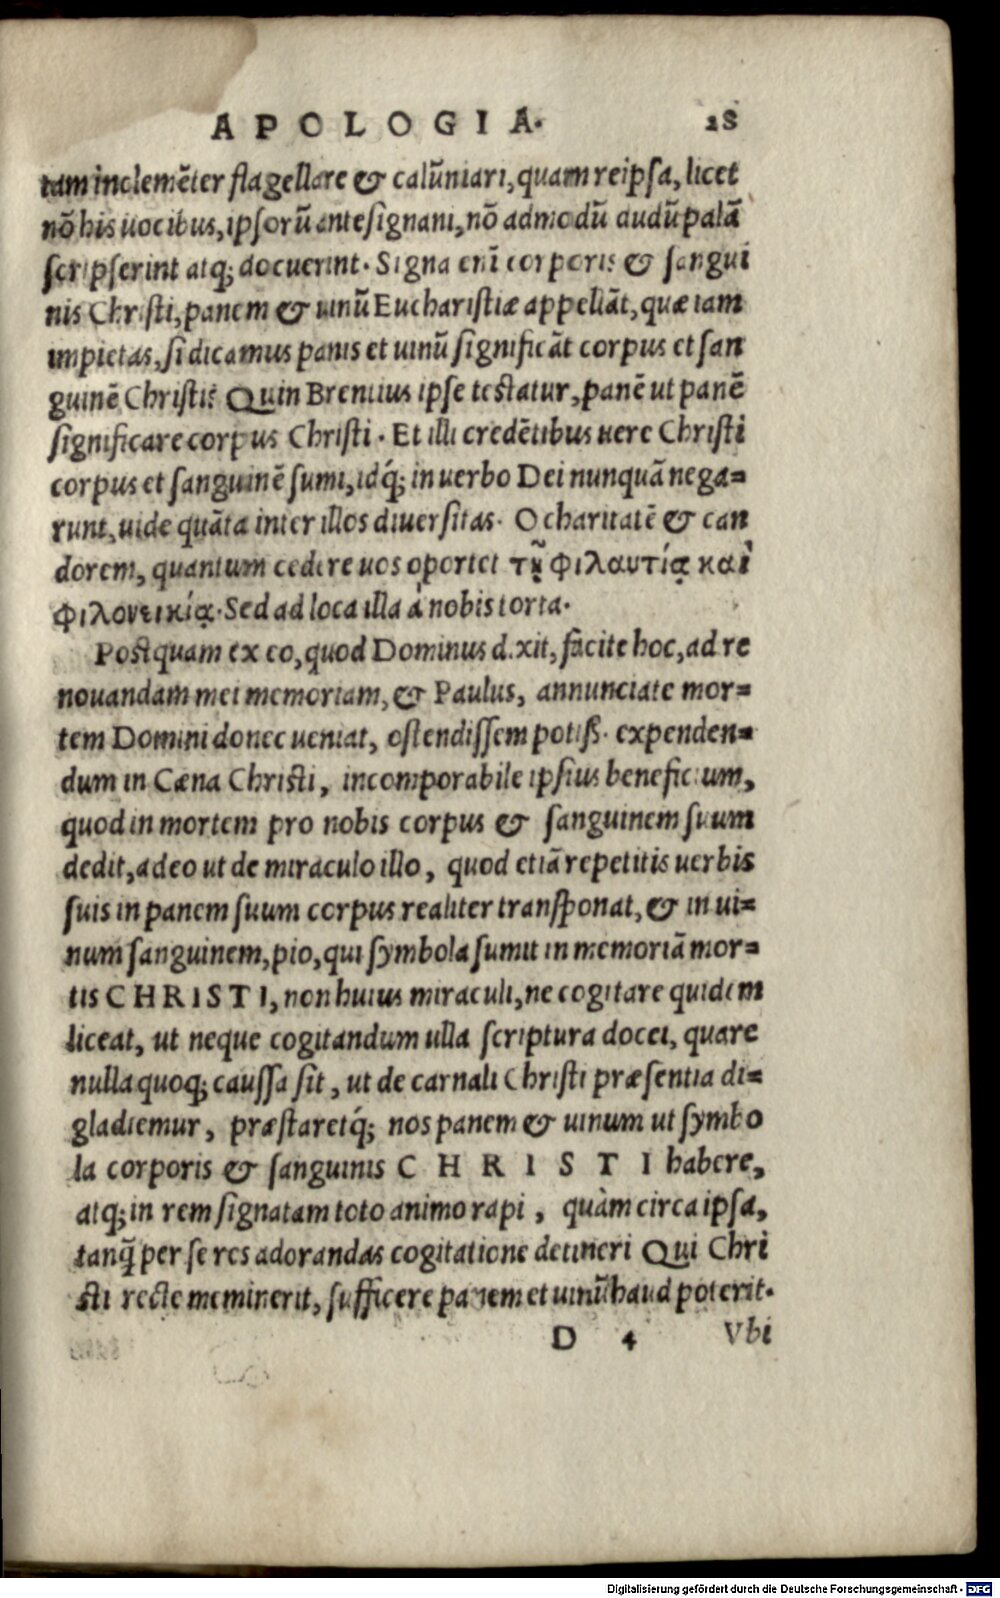 APOLOGIA. 28
tam inclemẽter flagellare & calũniari, quam reipsa, licet
nõ his uocibus, ipsorũ antesignani, nõ admodũ dudũ palã
scripserint atq; docuerint. Signa enĩ corporis & sangui
nis Christi, panem & uinũ Eucharistiæ appellãt, quæ iam
impietas, si dicamus panis et uinũ significãt corpus et san
guinẽ Christi? Quin Brentius ipse testatur, panẽ ut panẽ
significare corpus Christi. Et illi credẽtibus uere Christi
corpus et sanguinẽ sumi, idq́; in uerbo Dei nunquã nega=
runt, uide quãta inter illos diuersitas. O charitatẽ & can
dorem, quantum cedere uos oportet τῇ φιλαυτίᾳ καὶ
φιλονεικίᾳ. Sed ad loca illa à nobis torta.
Postquam ex eo, quod Dominus dixit, facite hoc, ad re
nouandam mei memoriam, & Paulus, annunciate mor=
tem Domini donec ueniat, ostendissem potiß. expenden=
dum in Cæna Christi, incomparabile ipsius beneficium,
quod in mortem pro nobis corpus & sanguinem suum
dedit, adeo ut de miraculo illo, quod etiã repetitis uerbis
suis in panem suum corpus realiter transponat, & in ui=
num sanguinem, pio, qui symbola sumit in memoriã mor=
tis CHRISTI, non huius miraculi, ne cogitare quidem
liceat, ut neque cogitandum ulla scriptura docet, quare
nulla quoq; caussa sit, ut de carnali Christi præsentia di=
gladiemur, præstaretq́; nos panem & uinum ut symbo
la corporis & sanguinis CHRISTI habere,
atq; in rem signatam toto animo rapi, quàm circa ipsa,
tanq̃ per se res adorandas cogitatione detineri Qui Chri
sti recte meminerit, sufficere panem et uinũ haud poterit.
D 4 Vbi
Digitalisierung gefördert durch die Deutsche Forschungsgemeinschaft - DFG